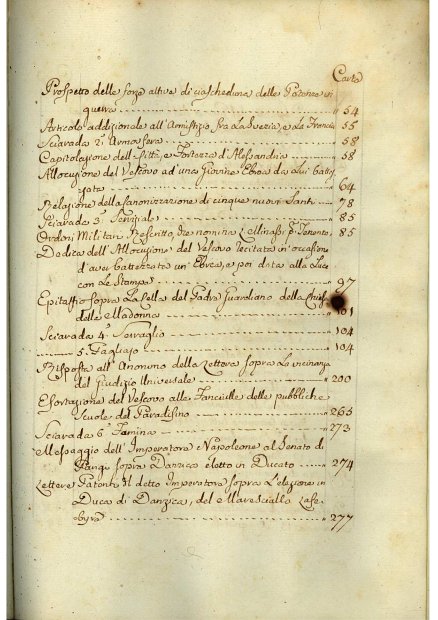 Carta
Prospetto delle forze attive di ciascheduna delle Potenze in
guerra " 54
Articolo addizionale all'Armistizio fra la Svezia, e la Francia 55
Sciarada 2ª " 58
Capitolazione dell' Città, e Fortezza d'Alessandria " 58
Allocuzione del Vescovo ad una Giovine Ebrea da Lui battez-
zata " 64
Relazione della Canonizzazione di cinque nuovi Santi " 78
Sciarada 3ª " 85
Ordoni Militari Rescritto, che nomina " 85
Dedica dell'Allocuzione del Vescovo recitata in occasione
d'aver battezzato un'Ebrea, e poi data alla Luce
con Le Stampe " 97
Epitaffio sopra La Cella del Padre Guardiano della
della Madonna " 101
Sciarada 4ª Serraglio " 104
5ª Pagliajo " 104
Risposta all'Anonimo della Lettera sopra La vicinanza
del Giudizio Universale " 200
Esortazione del Vescovo alle Fanciulle delle pubbliche
Scuole del Paradisino " 265
Sciarada 6ª Famina " 273
Messaggio dell'Imperatore Napoleone al Senato di
Parigi sopra Danzica eletto in Ducato " 274
Lettere Patenti il detto Imperatore sopra L'elezione in
Duca di Danzica, del Maresciallo Lafe-
byre " 277